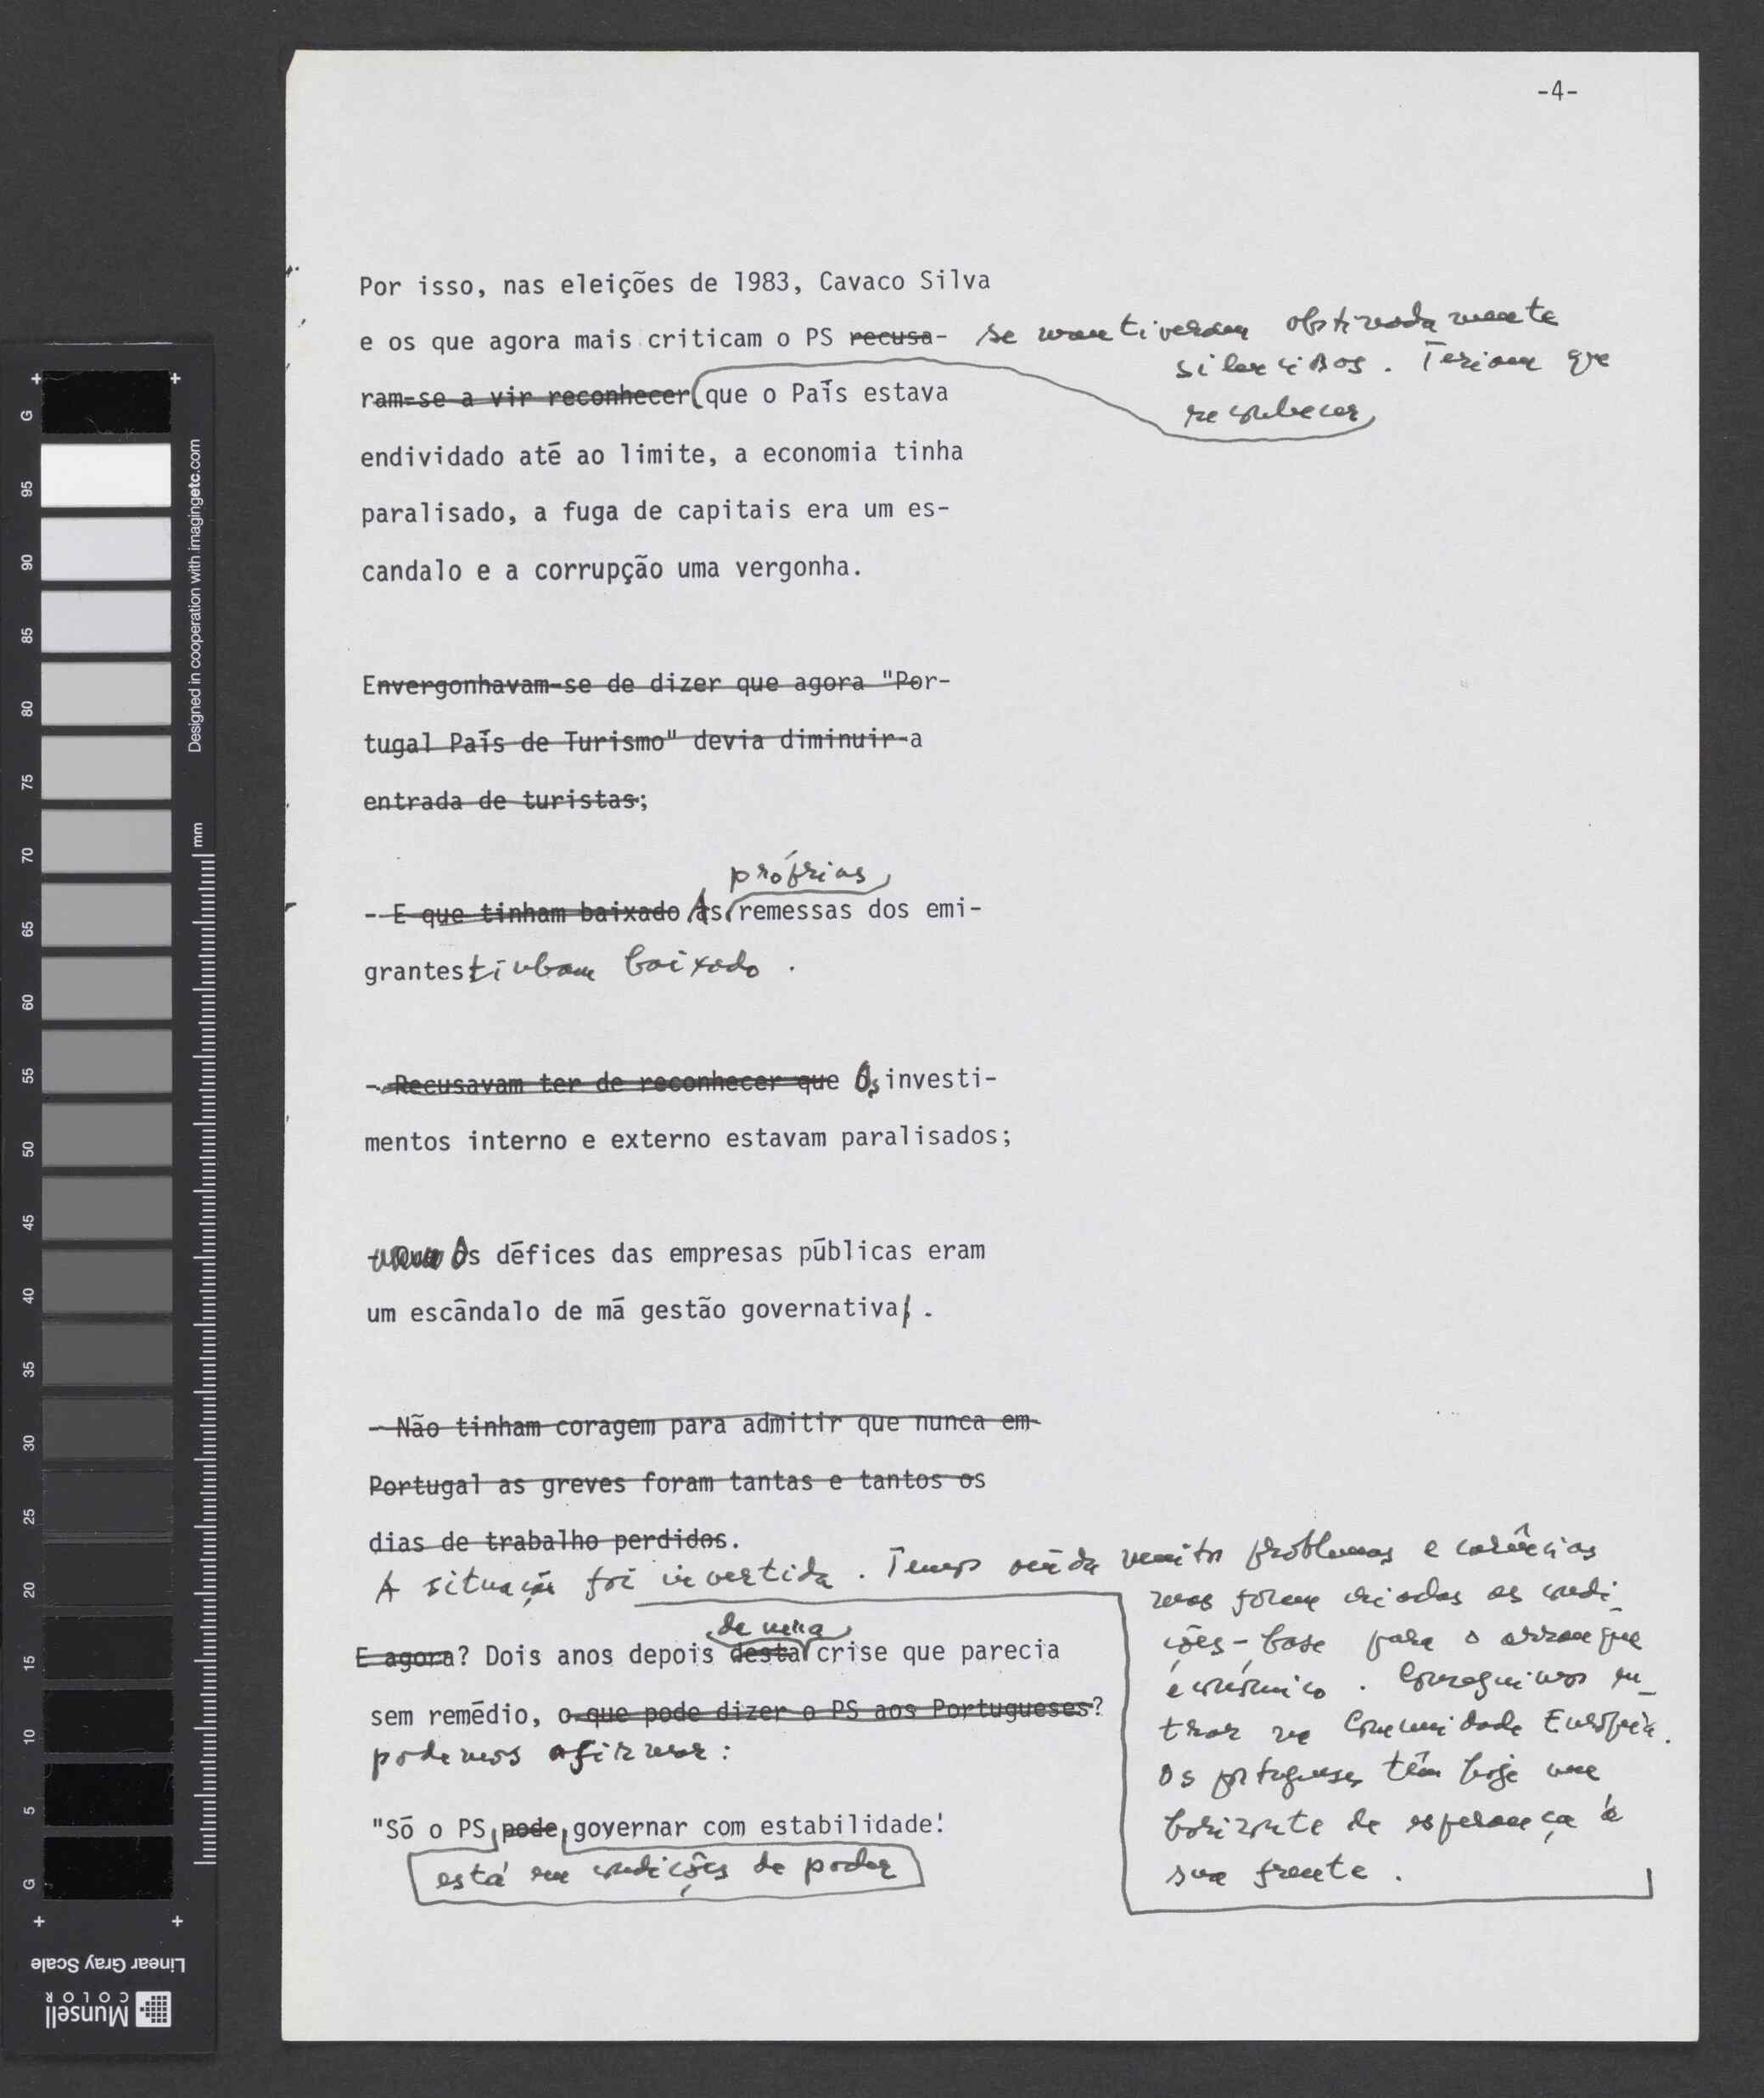 -4-
Por isso, nas eleições de 1983, Cavaco Silva
e os que agora mais criticam o PS recusa- se mantiveram obstinadamente
silenciosos. Teriam que
ram-se a vir reconhecer que o País estava
reconhecer
endividado até ao limite, a economia tinha
paralisado, a fuga de capitais era um es-
candalo e a corrupção uma vergonha.
Envergonhavam-se de dizer que agora "Por-
tugal País de Turismo" devia diminuir a
entrada de turistas;
próprias
- E que tinham baixado As remessas dos emi-
grantes tinham baixado.
- Recusavam ter de reconhecer que Os investi-
mentos interno e externo estavam paralisados;
Os défices das empresas públicas eram
um escândalo de má gestão governativa.
- Não tinham coragem para admitir que nunca em
Portugal as greves foram tantas e tantos os
dias de trabalho perdidos.
A situação foi invertida. Temos ainda muitos problemas e carências
mas foram criadas as condi-
ções-base para o arranque
económico. Conseguimos en-
trar na Comunidade Européia.
Os portugueses têm hoje um
horizonte de esperança à
sua frente.
de uma
E agora? Dois anos depois desta crise que parecia
sem remédio, o que pode dizer o PS aos Portugueses?
podemos afirmar:
"Só o PS pode governar com estabilidade!
está em condições de poder
G
95
90
85
80
75
70
65
60
55
50
45
40
35
30
25
20
15
10
5
G
Designed in cooperation with imagingetc.com
mm
Linear Gray Scale
Munsell
COLOR